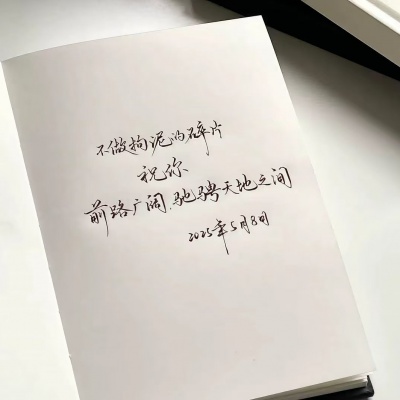 不做拘泥的碎片
祝你
前路广阔，驰骋天地之间
2025年5月8日